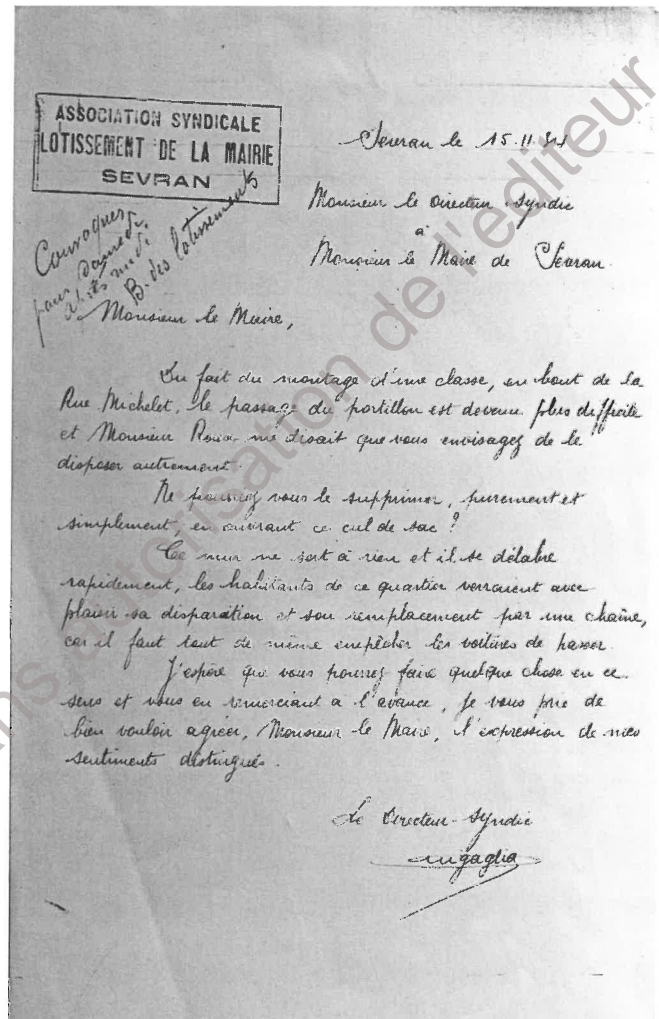 ASSOCIATION SYNDICALE
LOTISSEMENT DE LA MAIRIE
SEVRAN
Sevran le 15.11.
Convoquer
pour samedi
après midi
B. des lotissements
Monsieur le Directeur-Syndic
à
Monsieur le Maire de Sevran.
Monsieur le Maire,
Du fait du montage d'une classe, en bout de la
Rue Michelet, le passage du portillon est devenu plus difficile
et Monsieur Roux me disait que vous envisagez de le
disposer autrement.
Ne pourriez vous le supprimer, purement et
simplement, en ouvrant ce cul de sac ?
Ce mur ne sert à rien et il se délabre
rapidement, les habitants de ce quartier verraient avec
plaisir sa disparition et son remplacement par une chaîne,
car il faut tout de même empêcher les voitures de passer.
J'espère que vous pourrez faire quelque chose en ce
sens et vous en remerciant à l'avance, je vous prie de
bien vouloir agréer, Monsieur le Maire, l'expression de mes
sentiments distingués.
Le Directeur-Syndic
sans autorisation de l'éditeur